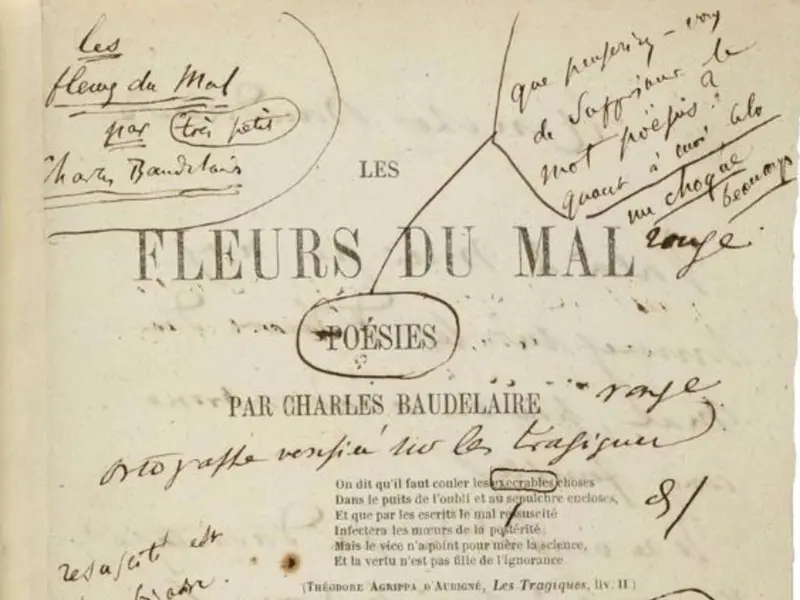 les
fleurs du Mal
par très petit
Charles Baudelaire
que penseriez-vous
de supprimer le
mot poësies?
quant à moi cela
me choque
beaucoup
rouge.
LES
FLEURS DU MAL
POÉSIES
PAR CHARLES BAUDELAIRE
rouge
ortographe verifié sur les tragiques
On dit qu'il faut couler les execrables choses
Dans le puits de l'oubli et au sepulchre encloses,
Et que par les escrits le mal resuscité
Infectera les mœurs de la postérité;
Mais le vice n'a point pour mère la science,
Et la vertu n'est pas fille de l'ignorance
(THÉODORE AGRIPPA D'AUBIGNÉ, Les Tragiques, liv. II)
resuscité est